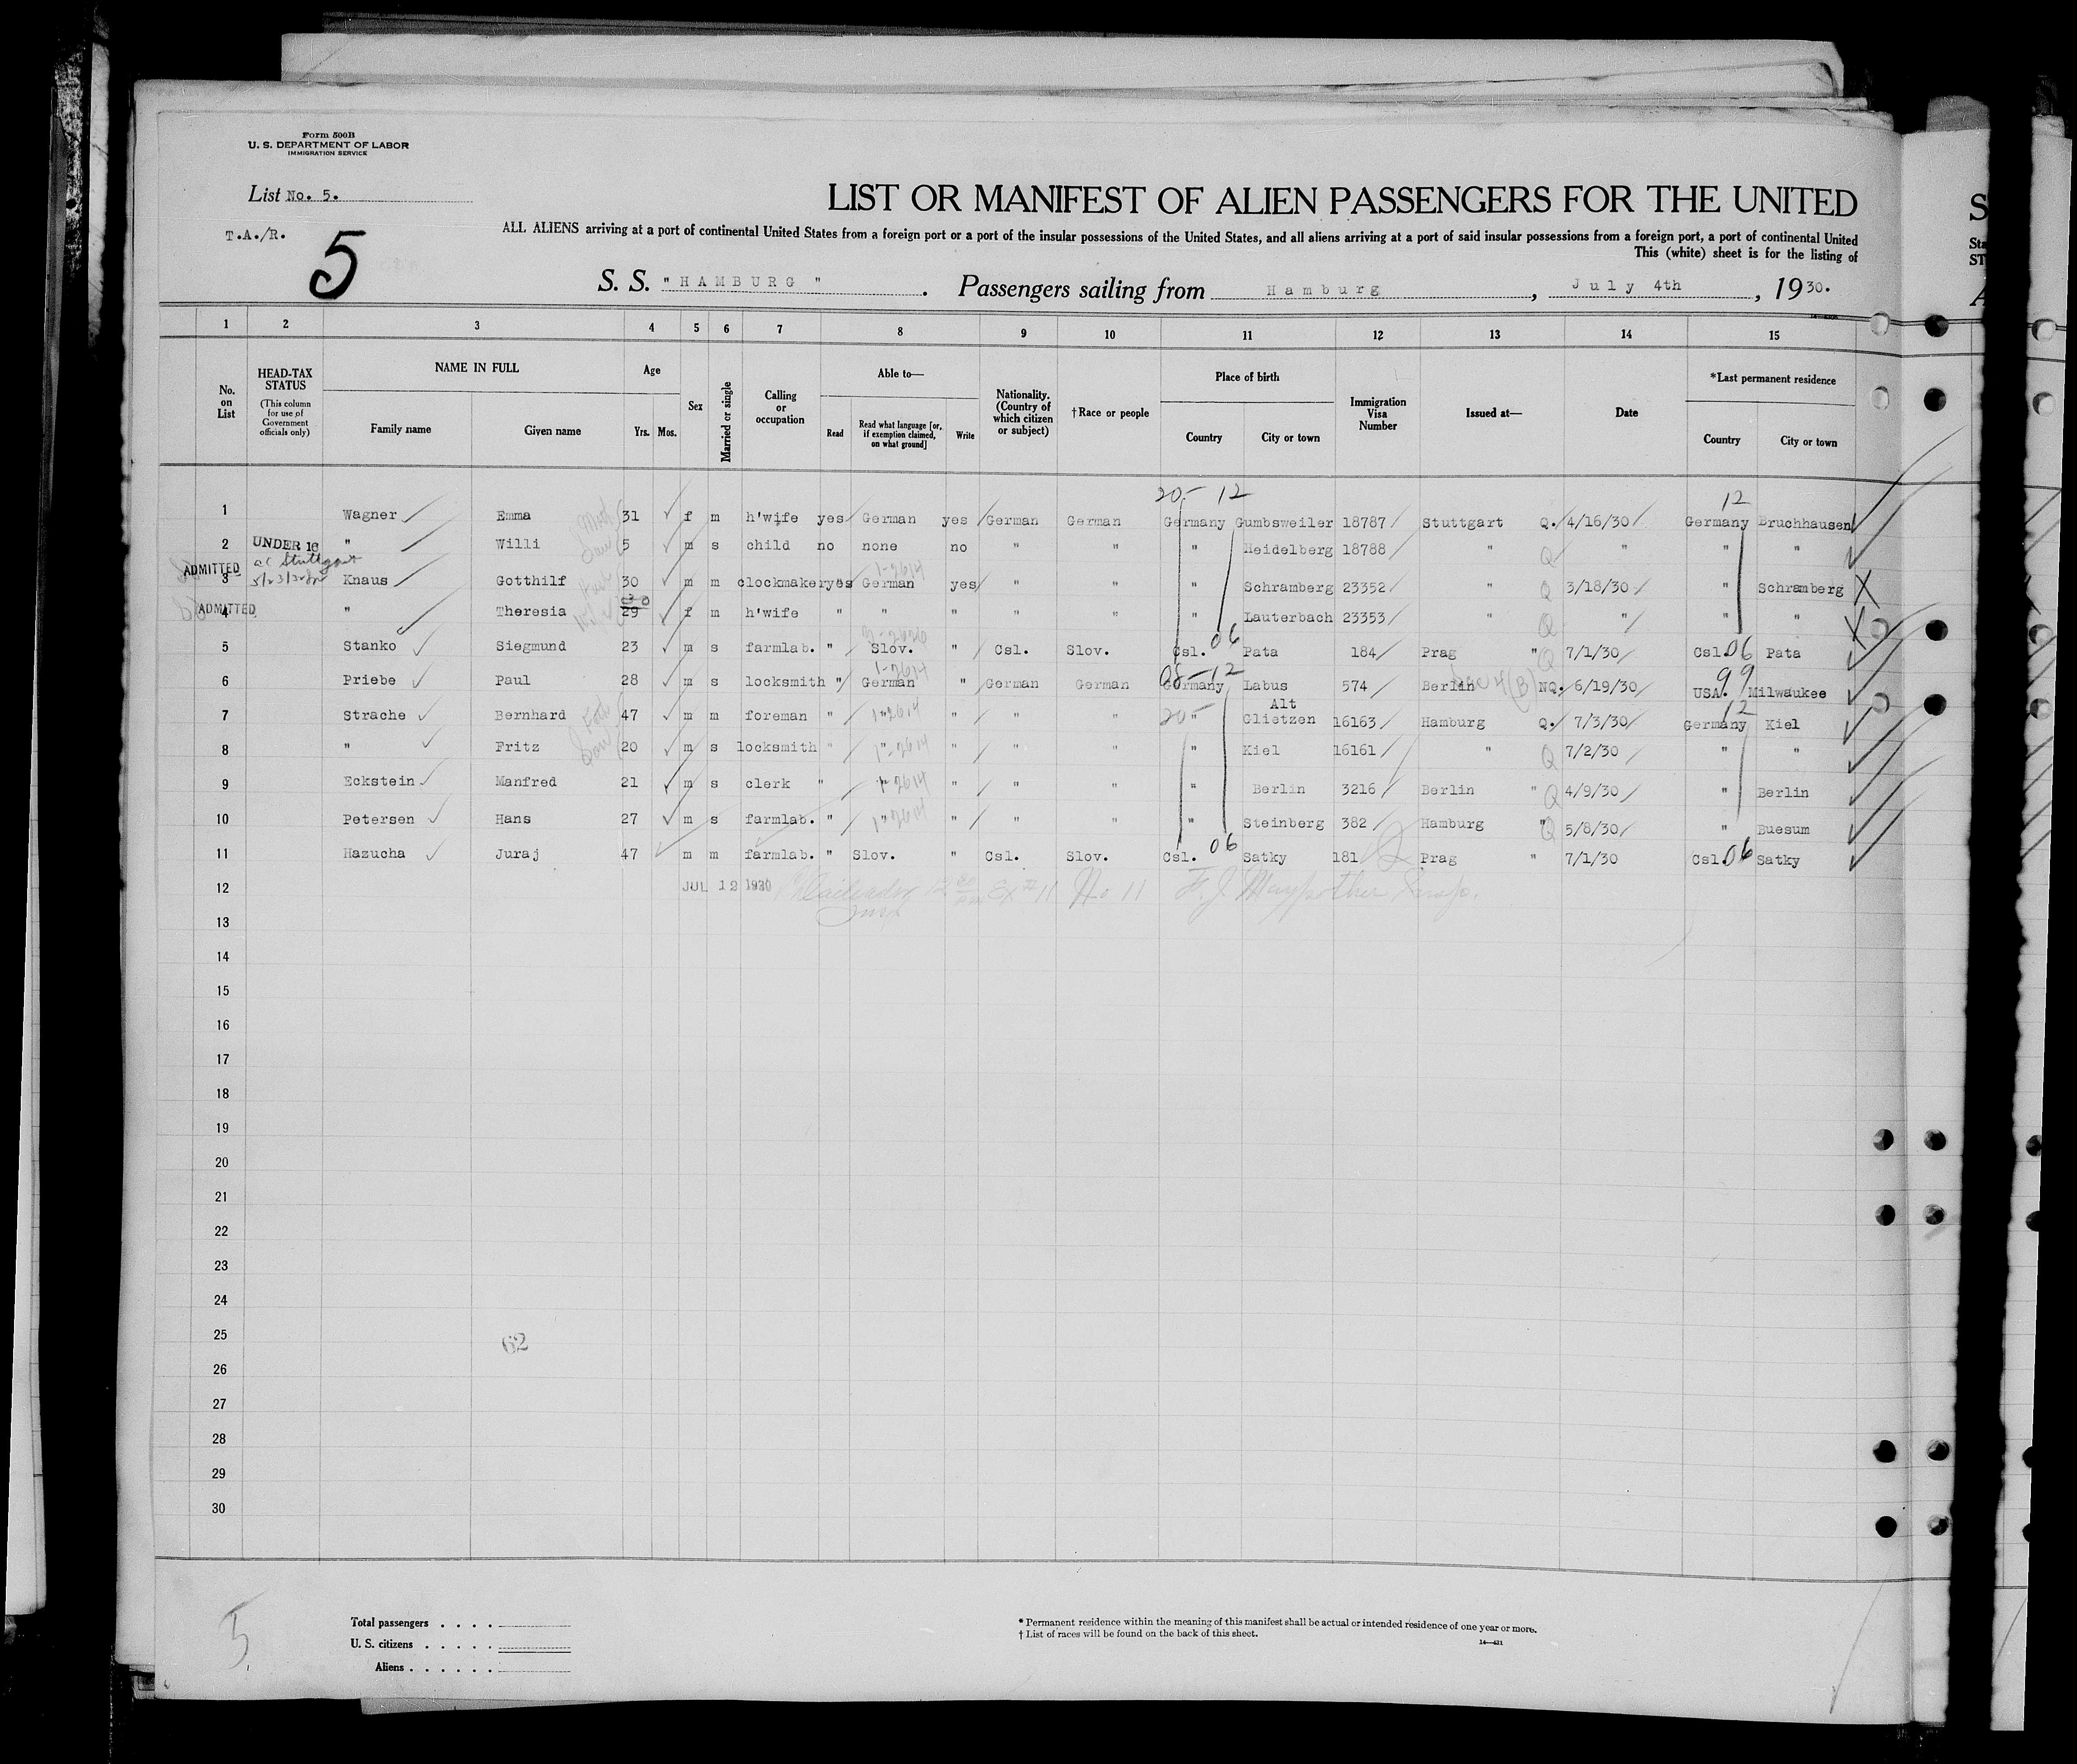 Form 500B
U. S. DEPARTMENT OF LABOR
IMMIGRATION SERVICE
List No. 5.
T.A./R.
5
LIST OR MANIFEST OF ALIEN PASSENGERS FOR THE UNITED
ALL ALIENS arriving at a port of continental United States from a foreign port or a port of the insular possessions of the United States, and all aliens arriving at a port of said insular possessions from a foreign port, a port of continental United
This (white) sheet is for the listing of
S. S. " HAMBURG " . Passengers sailing from Hamburg , July 4th , 1930.
1 2 3 4 5 6 7 8 9 10 11 12 13 14 15
No. on List
HEAD-TAX STATUS (This column for use of Government officials only)
NAME IN FULL
Family name Given name
Age
Yrs. Mos.
Sex
Married or single
Calling or occupation
Able to—
Read Read what language [or, if exemption claimed, on what ground] Write
Nationality. (Country of which citizen or subject)
†Race or people
Place of birth
Country City or town
Immigration Visa Number
Issued at—
Date
*Last permanent residence
Country City or town
20- 12 12
1 Wagner Emma 31 f m h'wife yes German yes German German Germany Gumbsweiler 18787 Stuttgart Q. 4/16/30 Germany Bruchhausen
2 UNDER 16 " Willi 5 m s child no none no " " " Heidelberg 18788 " Q " " "
ADMITTED
1-2614
3 Knaus Gotthilf 30 m m clockmaker yes German yes " " " Schramberg 23352 " Q 3/18/30 " Schramberg
30
4 ADMITTED " Theresia 29 f m h'wife " " " " " " Lauterbach 23353 " Q " " "
06
5 Stanko Siegmund 23 m s farmlab. " Slov. " Csl. Slov. Csl. Pata 184 Prag " Q 7/1/30 Csl. 06 Pata
1-2614 08-12 99
6 Priebe Paul 28 m s locksmith " German " German German Germany Labus 574 Berlin NQ. 6/19/30 USA. Milwaukee
Alt 12
7 Strache Bernhard 47 m m foreman " 1-2614 " " " 20- " Glietzen 16163 Hamburg Q. 7/3/30 Germany Kiel
8 " Fritz 20 m s locksmith " 1-2614 " " " " Kiel 16161 " Q 7/2/30 " "
9 Eckstein Manfred 21 m s clerk " 1-2614 " " " " Berlin 3216 Berlin " Q 4/9/30 " Berlin
10 Petersen Hans 27 m s farmlab. " 1-2614 " " " " Steinberg 382 Hamburg " Q 5/8/30 " Buesum
06
11 Hazucha Juraj 47 m m farmlab. " Slov. " Csl. Slov. Csl. Satky 181 Prag " 7/1/30 Csl. 06 Satky
12 JUL 12 1930 No 11
13
14
15
16
17
18
19
20
21
22
23
24
25
62
26
27
28
29
30
5
Total passengers . . . .
U. S. citizens . . . . .
Aliens . . . . . .
* Permanent residence within the meaning of this manifest shall be actual or intended residence of one year or more.
† List of races will be found on the back of this sheet.